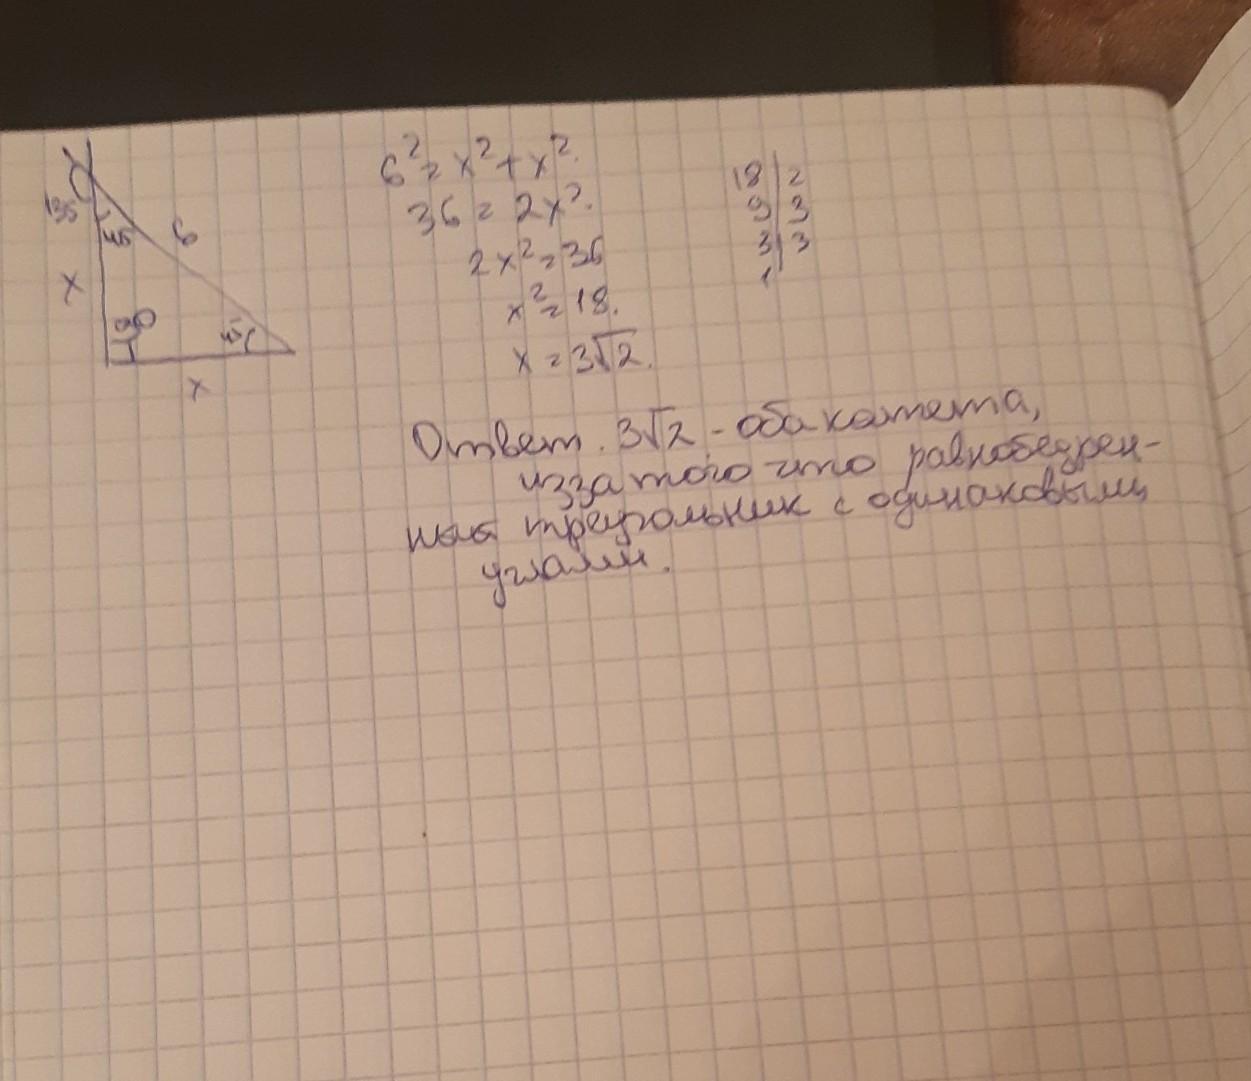 135
45
6
x
90
45
x
6² = x² + x².
36 = 2x².
2x² = 36
x² = 18.
x = 3√2.
18 | 2
9 | 3
3 | 3
1
Ответ. 3√2 - оба катета,
иззатого что равнобедрен-
ный треугольник с одинаковыми
углами.